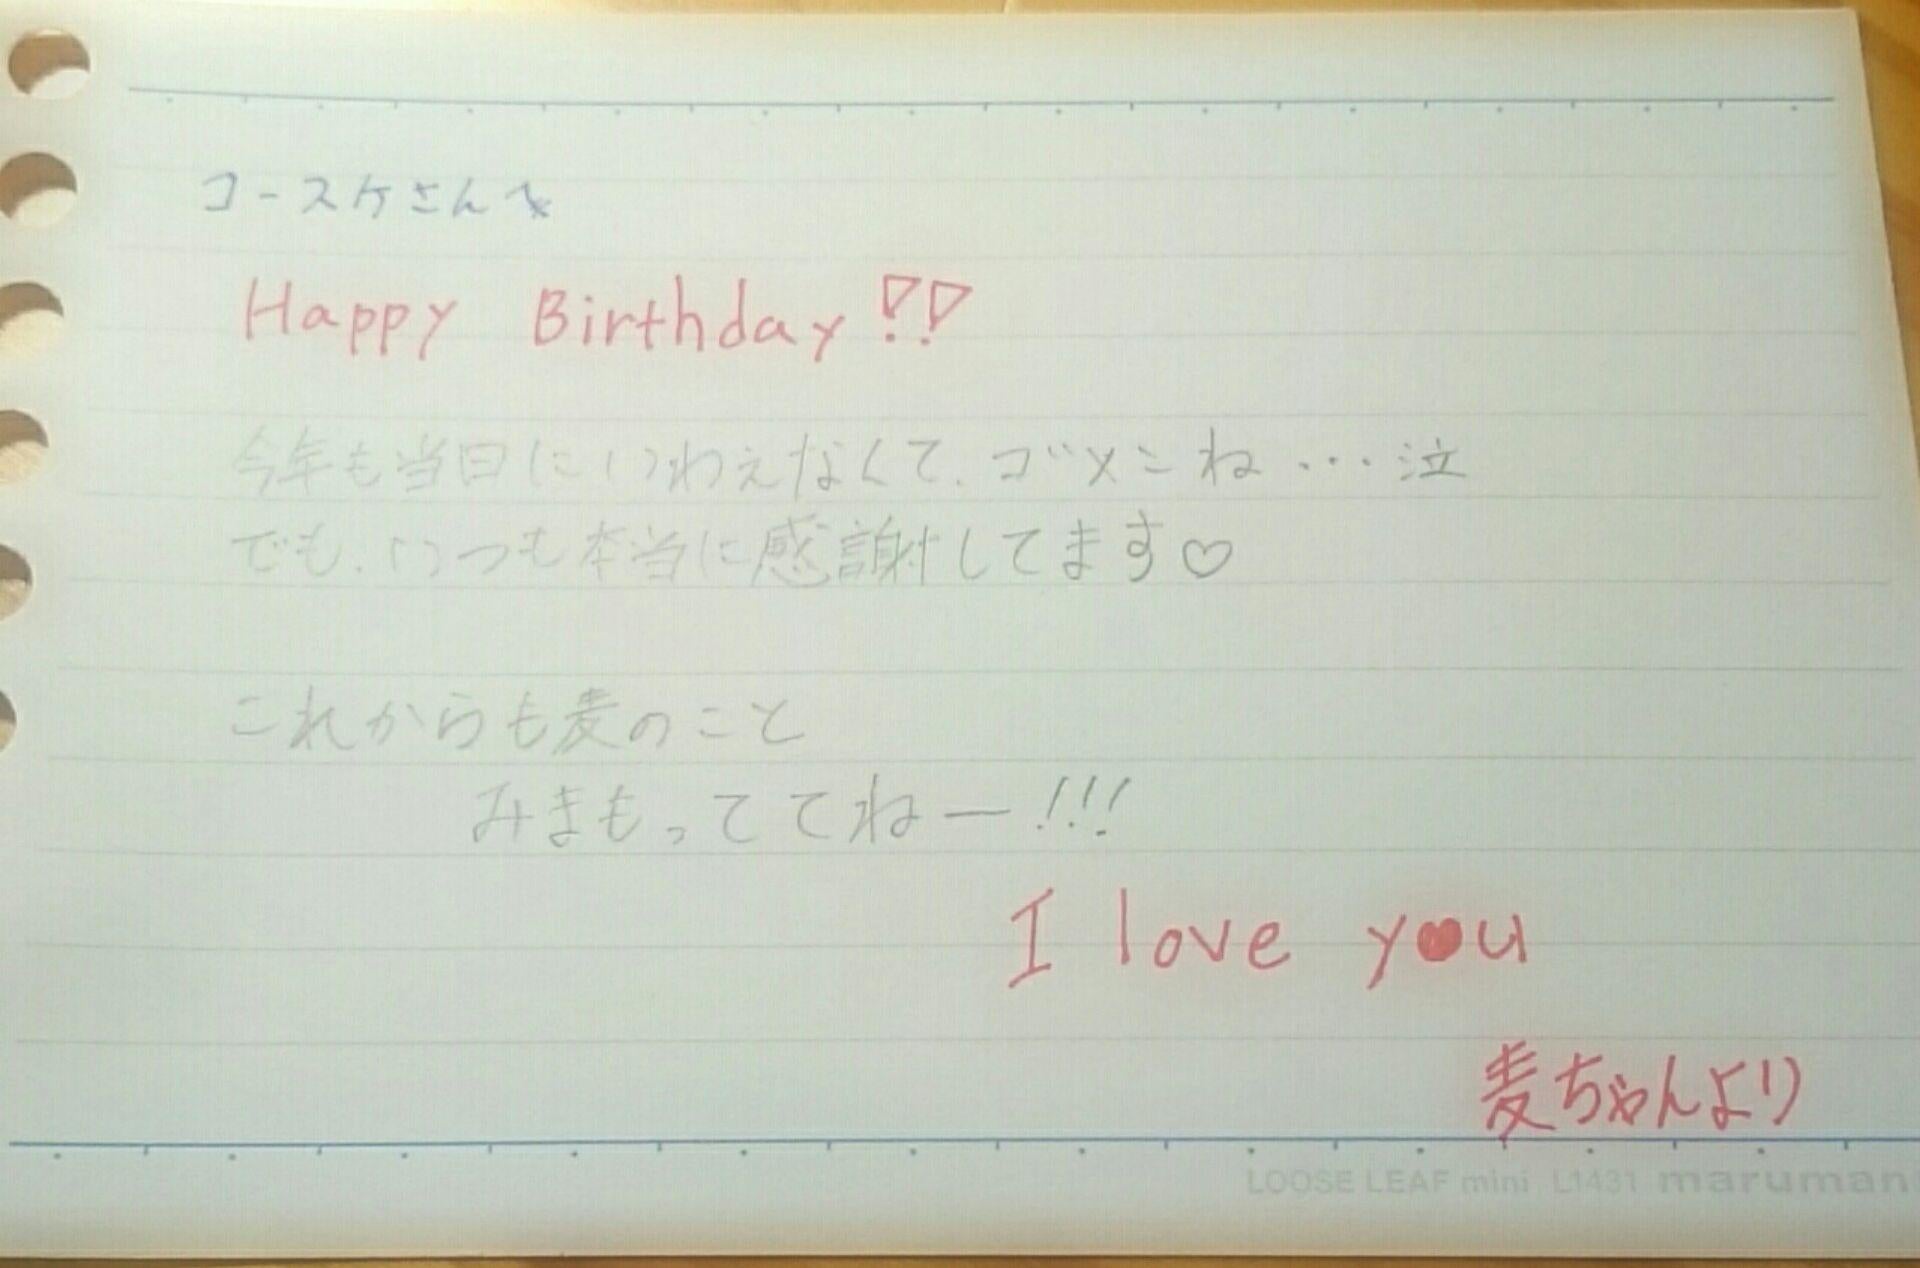 コースケさんへ
Happy Birthday!!
今年も当日にいわえなくて、ゴメンね...泣
でも、いつも本当に感謝してます♡
これからも麦のこと
みまもっててねー!!!
I love you
麦ちゃんより
LOOSE LEAF mini L1431 maruman